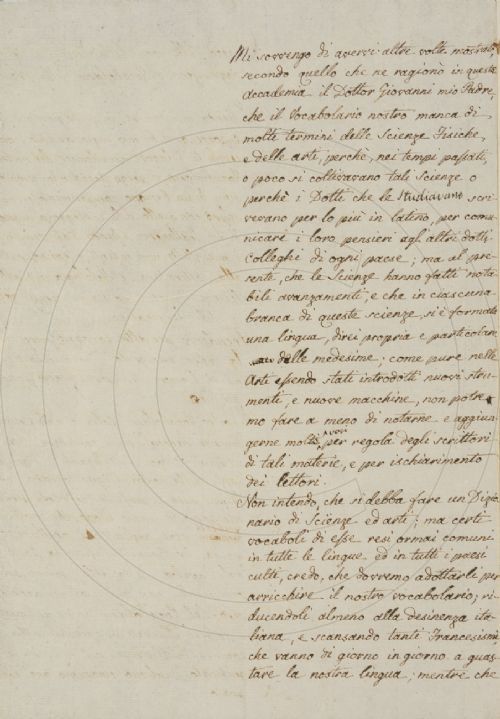 Mi sovvengo di avervi altre volte mostrato,
secondo quello che ne ragionò in questa
Accademia il Dottor Giovanni mio Padre,
che il Vocabolario nostro manca di
molti termini delle Scienze Fisiche,
e delle arti, perchè, nei tempi passati,
o poco si coltivavano tali Scienze o
perchè i Dotti che le studiavano scri
vevano per lo più in latino, per comu
nicare i loro pensieri agli altri dotti
Colleghi di ogni paese; ma al pre
sente, che le Scienze hanno fatti nota
bili avanzamenti, e che in ciascuna
branca di queste scienze, si è formata
una lingua, direi propria e particolare
delle medesime; come pure nelle
Arti essendo stati introdotti nuovi stru
menti, e nuove macchine, non potre
mo fare a meno di notarne e aggiun
gerne molte per regola degli scrittori
di tali materie, e per ischiarimento
dei lettori.
Non intendo, che si debba fare un Dizio
nario di Scienze ed arti; ma certi
vocaboli di esse resi ormai comuni
in tutte le lingue ed in tutti i paesi
culti, credo, che dovremo adottarli per
arricchire il nostro vocabolario; ri
ducendoli almeno alla desinenza ita
liana, e scansando tanti Francesismi,
che vanno di giorno in giorno a guas
tare la nostra lingua; mentre che